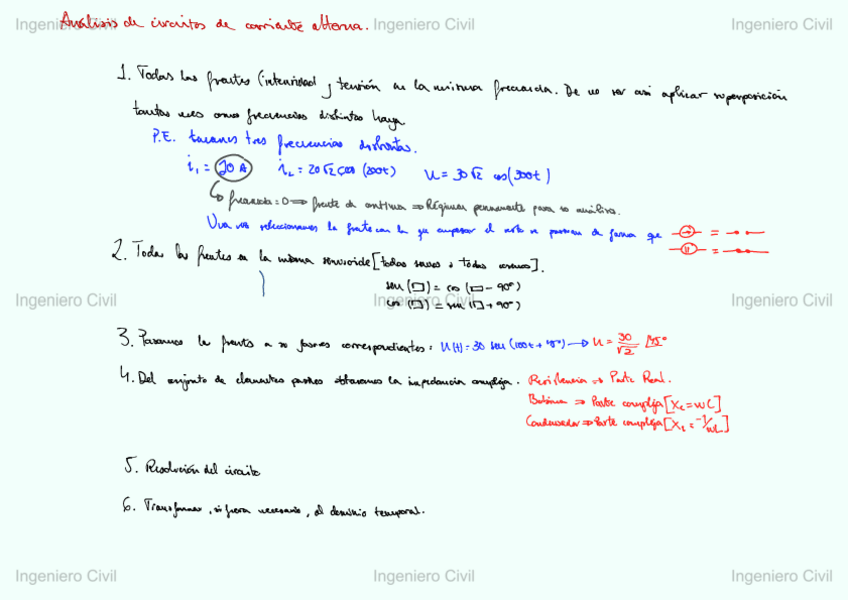 Ingeniero Civil Ingeniero Civil Ingeniero Civil
Análisis de circuitos de corriente alterna.
1. Todas las fuentes (intensidad y tensión en la misma frecuencia. De no ser así aplicar superposición
tantas veces como frecuencias distintas haya
P.E. tenemos tres frecuencias distintas.
i₁ = 20 A i₂ = 20√2 cos (200t) u = 30√2 cos(300t)
↳ frecuencia = 0 ⟹ fuente de continua ⟹ Régimen permanente para su análisis.
Una vez seleccionamos la fuente con la que empezar el resto se de forma que = =
2. Todas las fuentes en la misma senoide [todas senos o todas cosenos].
sen (□) = cos (□ - 90°)
Ingeniero Civil Ingeniero Civil Ingeniero Civil
cos (□) = sen (□ + 90°)
3. Pasamos la fuente a su fasores correspondientes: u(t) = 30 sen (100t + 45°) → u = 30/√2 ∠45°
4. Del conjunto de elementos pasivos obtenemos la impedancia compleja. Resistencia ⟹ Parte Real.
Bobina ⟹ Parte compleja [X_L = wL]
Condensador ⟹ Parte compleja [X_L = -1/wL]
5. Resolución del circuito
6. Transformar, si fuera necesario, al dominio temporal.
Ingeniero Civil Ingeniero Civil Ingeniero Civil